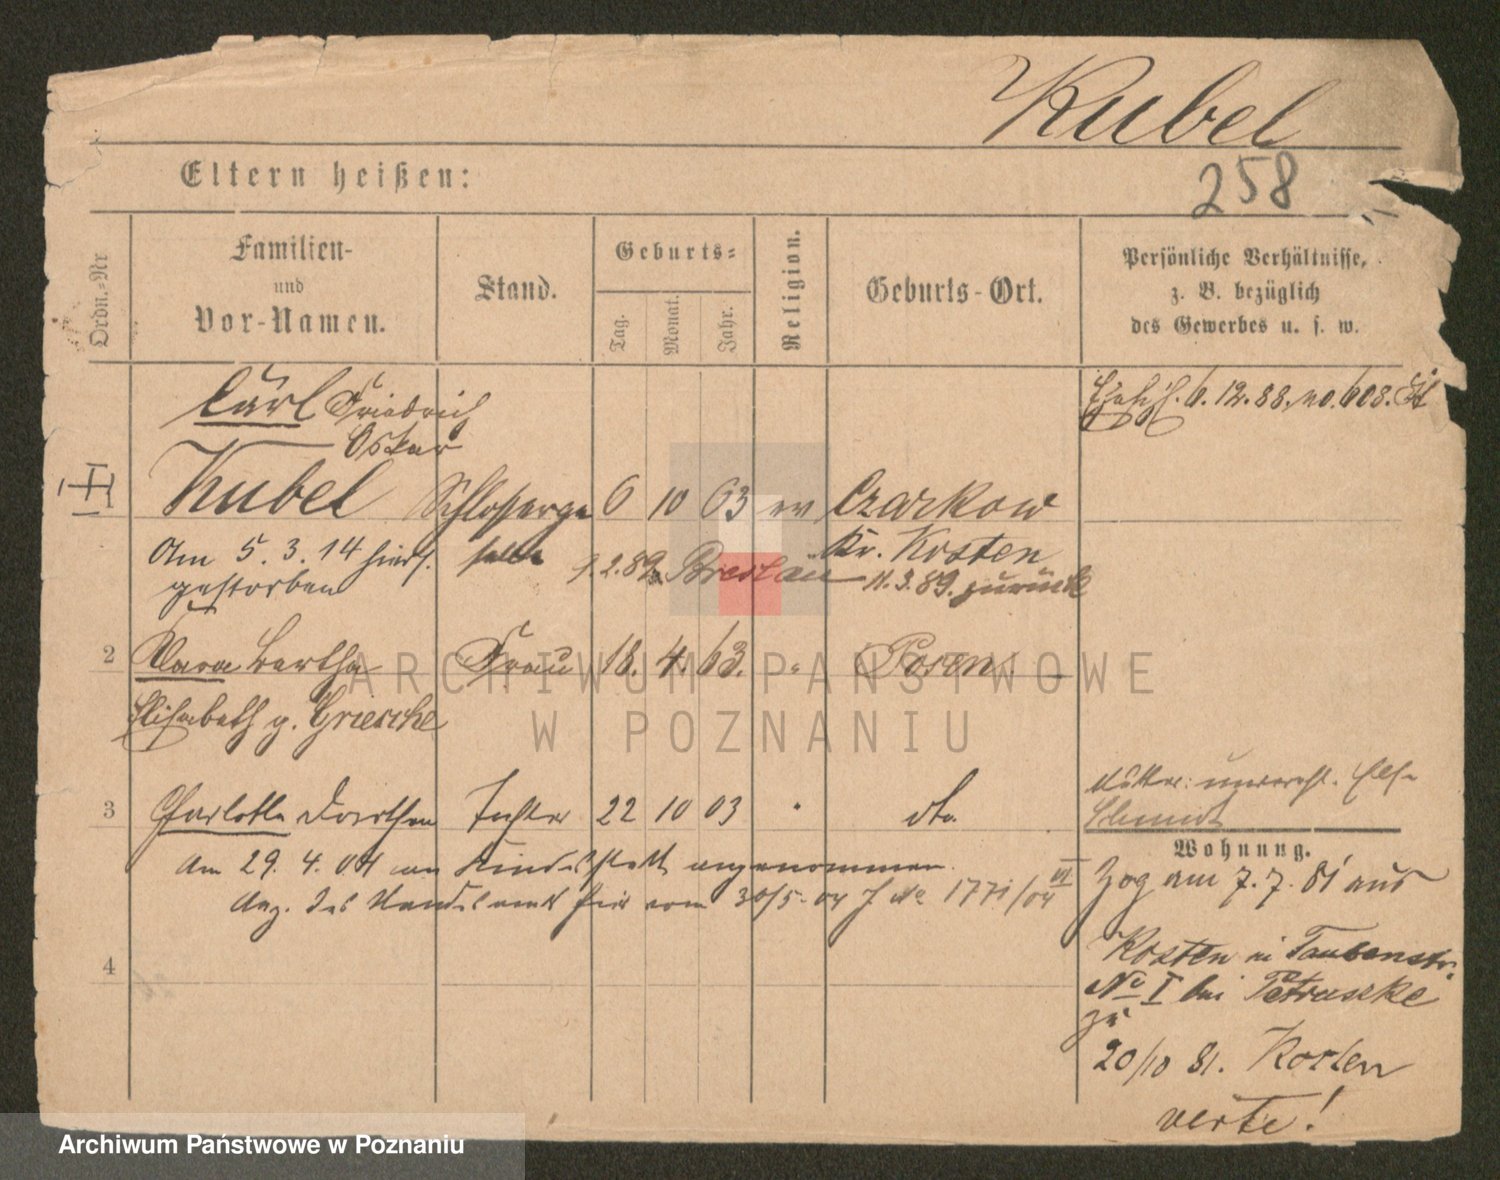 Kubel
Eltern heißen:
258
Ordn.-Nr
Familien-
und
Vor-Namen.
Stand.
Geburts-
Tag.
Monat.
Jahr.
Religion.
Geburts-Ort.
Persönliche Verhältnisse,
z. B. bezüglich
des Gewerbes u. s. w.
Carl Friedrich
Oskar
6. 12. 88. no. 608.
Kubel Schlosserge 6 10 63 ev Czarkow
selle Kr. Kosten
Am 5. 3. 14 hiers.
gestorben
1. 2. 89 Breslau 11. 3. 89. zurück
2 Clara Bertha Frau 18. 4. 63. " Posen
Elisabeth g. Griesche
3 Charlotte Dorothea Tochter 22 10 03 " dto.
Schmidt
am 29. 4. 04 an Kindesstatt angenommen.
30/5. 04 J No 1771/04 VI
Wohnung.
Zog am 7. 7. 81 aus
Kosten in Taubenstr.
No I bei Petraschke
zu
4
20/10 81. Kosten
verte!
ARCHIWUM PAŃSTWOWE
W POZNANIU
Archiwum Państwowe w Poznaniu